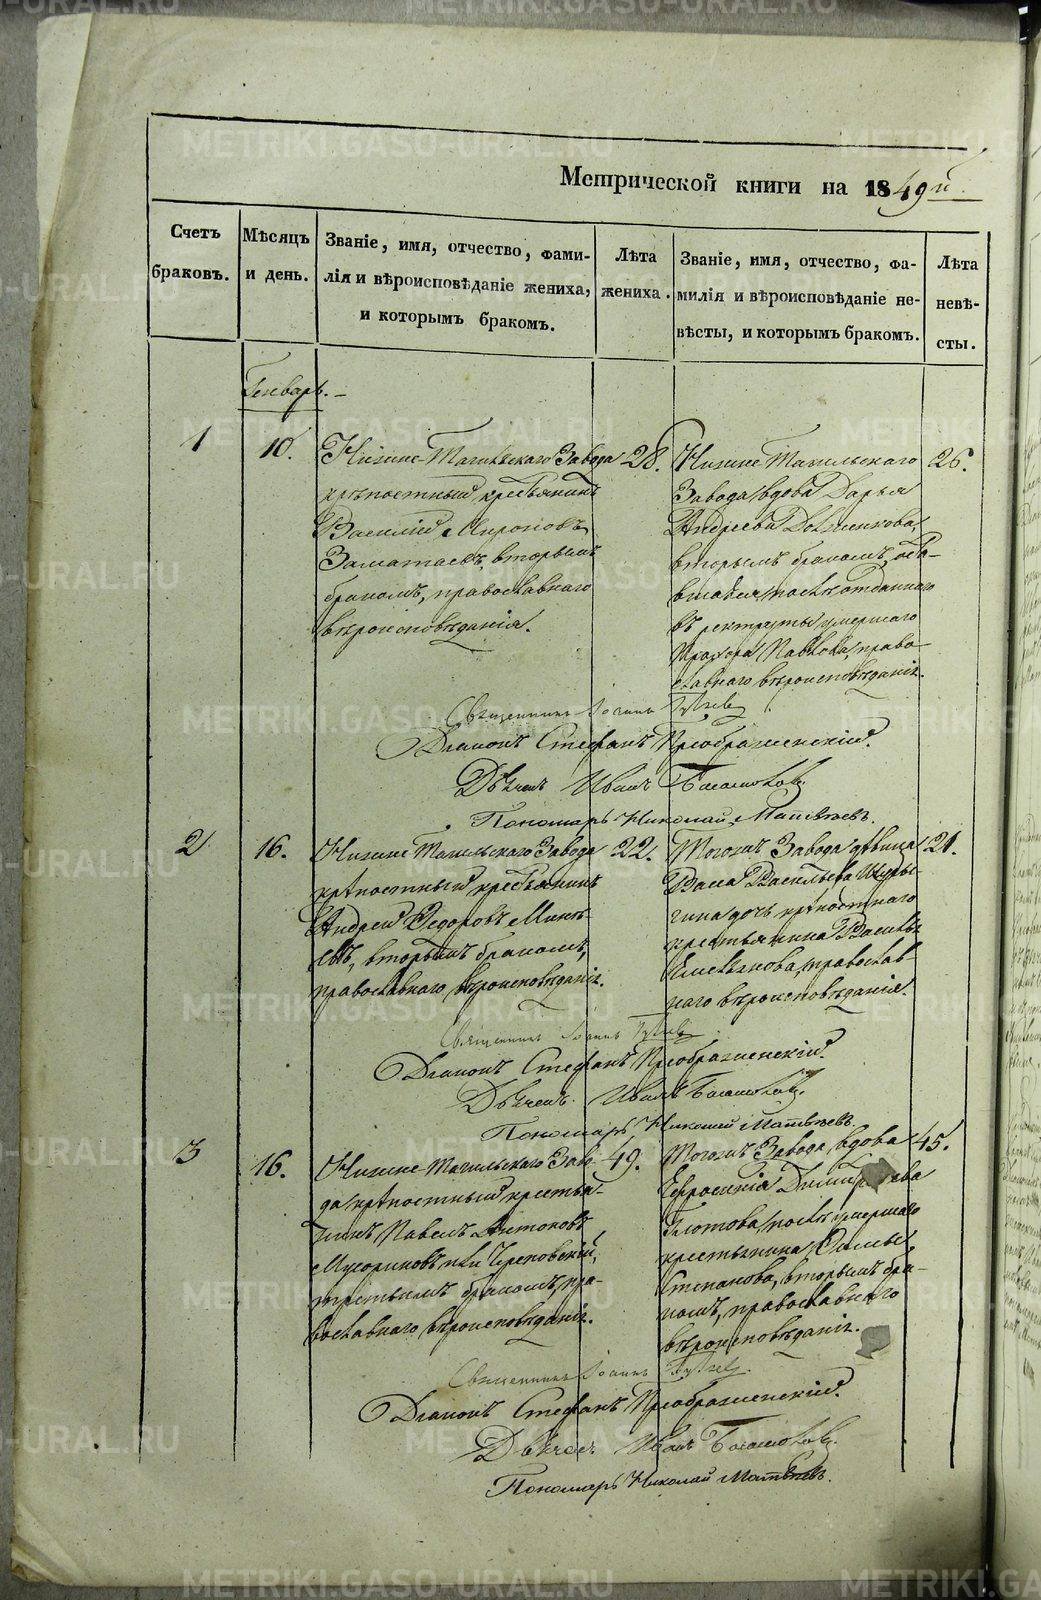 Метрической книги на 1849й
Счетъ браковъ.
Мѣсяцъ и день.
Званіе, имя, отчество, фами-
лія и вѣроисповѣданіе жениха,
и которымъ бракомъ.
Лѣта жениха.
Званіе, имя, отчество, фа-
милія и вѣроисповѣданіе не-
вѣсты, и которымъ бракомъ.
Лѣта невѣ-
сты.
Генварь.
1
10.
Нижне-Тагильскаго Завода
крѣпостный крестьянинъ
Василій Мироновъ
вторымъ
бракомъ, православнаго
вѣроисповѣданія.
28.
Нижне Тагильскаго
Завода вдова Дарья
Андреева
вторымъ бракомъ, оста-
вшаяся послѣ отданнаго
въ рекруты умершаго
Прохора Павлова, право-
славнаго вѣроисповѣданія.
26.
Священникъ Іоаннъ
Діаконъ Стефанъ Преображенскій.
Дьячекъ Иванъ
Пономарь Николай Матвѣевъ.
2
16.
Нижне Тагильскаго Завода
крѣпостный крестьянинъ
Андрей Ѳедоровъ Минѣ-
евъ, вторымъ бракомъ,
православнаго вѣроисповѣданія.
22.
Тогожъ Завода дѣвица
Васса Васильева
гина дочь крѣпостнаго
крестьянина Василья
Емельянова, православ-
наго вѣроисповѣданія.
21.
Священникъ Іоаннъ
Діаконъ Стефанъ Преображенскій.
Дьячекъ Иванъ
Пономарь Николай Матвѣевъ.
3
16.
Нижне-Тагильскаго Заво-
да крѣпостный крестья-
нинъ Павелъ Антоновъ
Мусориновъ или Череповскій,
третьимъ бракомъ, пра-
вославнаго вѣроисповѣданія.
49.
Тогожъ Завода, вдова
Евросинія
Глотова послѣ умершаго
крестьянина
Степанова, вторымъ бра-
комъ, православнаго
вѣроисповѣданія.
45.
Священникъ Іоаннъ
Діаконъ Стефанъ Преображенскій.
Дьячекъ Иванъ
Пономарь Николай Матвѣевъ.
METRIKI.GASO-URAL.RU